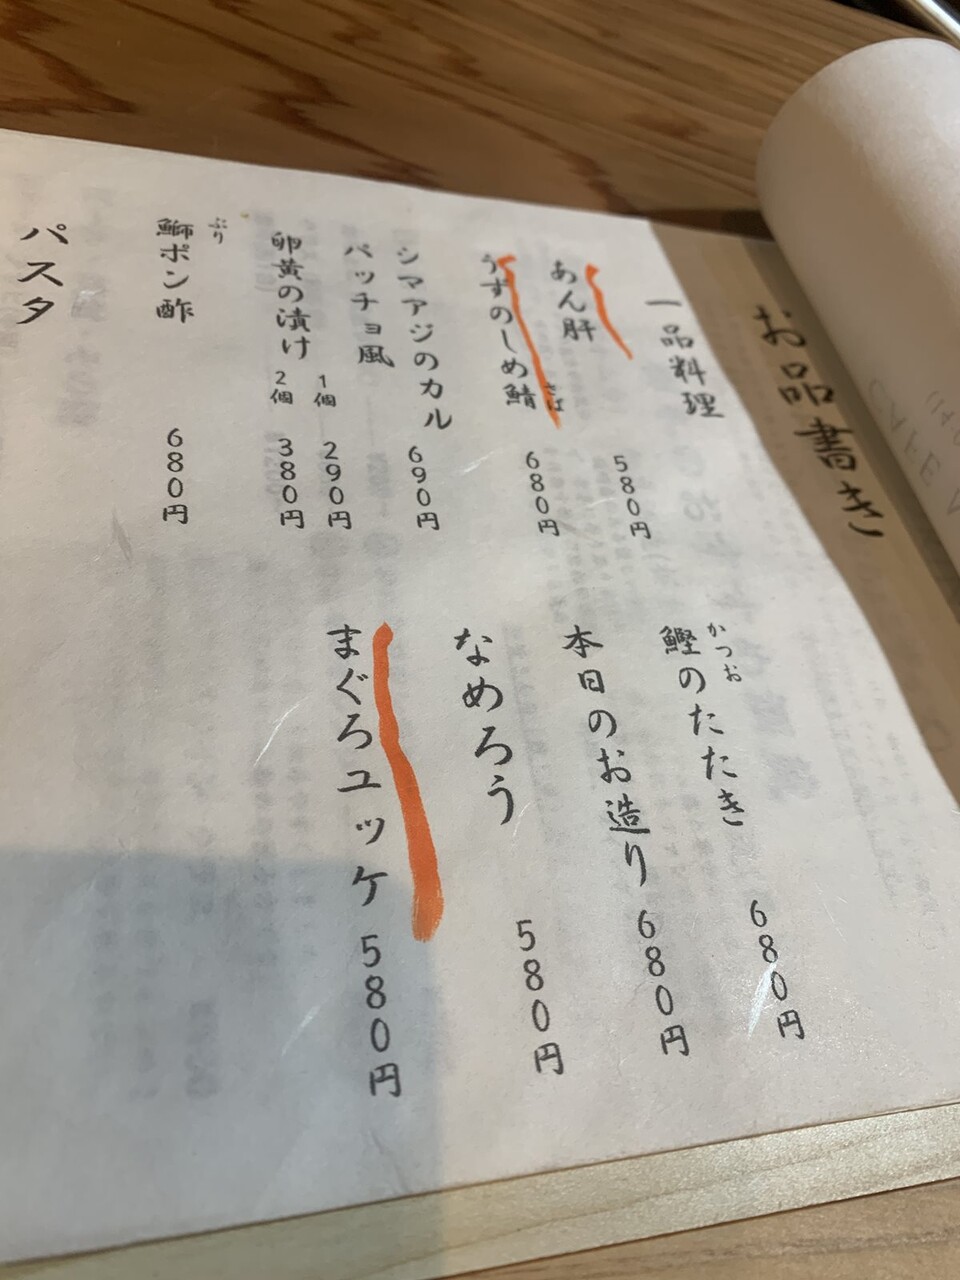 お品書き
一品料理
あん肝 580円
うずのしめ鯖 680円
さば
シマアジのカル
パッチョ風 690円
卵黄の漬け 1個 290円
2個 380円
鰤ポン酢 680円
ぶり
鰹のたたき 680円
かつお
本日のお造り 680円
なめろう 580円
まぐろユッケ 580円
パスタ
CAFE